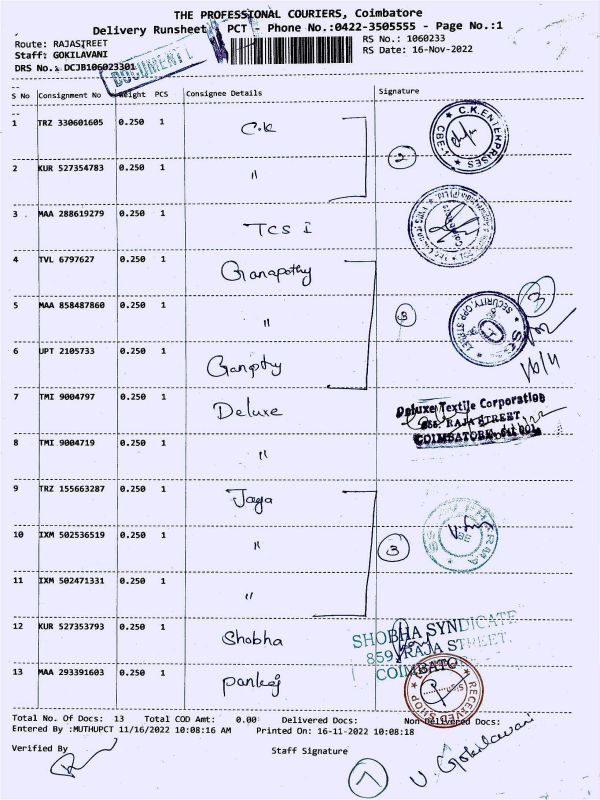 THE PROFESSIONAL COURIERS, Coimbatore
Delivery Runsheet PCT Phone No.:0422-3505555 - Page No.:1
Route: RAJASTREET RS No.: 1060233
Staff: GOKILAVANI RS Date: 16-Nov-2022
DRS No.: DCJB106023301
DOCUMENT
S No Consignment No Weight PCS Consignee Details Signature
1 TRZ 330601605 0.250 1 C.K
C.K.ENTERPRISES CBE-1
2 KUR 527354783 0.250 1 "
2
3 MAA 288619279 0.250 1 TCS I
4 TVL 6797627 0.250 1 Ganapathy
5 MAA 858487860 0.250 1 "
3
SECURITY, OPP. STREET
3
16/11
6 UPT 2105733 0.250 1 Ganpthy
7 TMI 9004797 0.250 1 Deluxe
Deluxe Textile Corporation
RAJA STREET
COIMBATORE 641 001
8 TMI 9004719 0.250 1 "
9 TRZ 155663287 0.250 1 Jaya
10 IXM 502536519 0.250 1 "
3
11 IXM 502471331 0.250 1 "
12 KUR 527353793 0.250 1 Shobha
SHOBHA SYNDICATE
859, RAJA STREET,
COIMBATO
13 MAA 293391603 0.250 1 pankaj
RECEIVED SHOP
Total No. Of Docs: 13 Total COD Amt: 0.00 Delivered Docs: Non Delivered Docs:
Entered By :MUTHUPCT 11/16/2022 10:08:16 AM Printed On: 16-11-2022 10:08:18
Verified By Staff Signature
V. Gokilavani